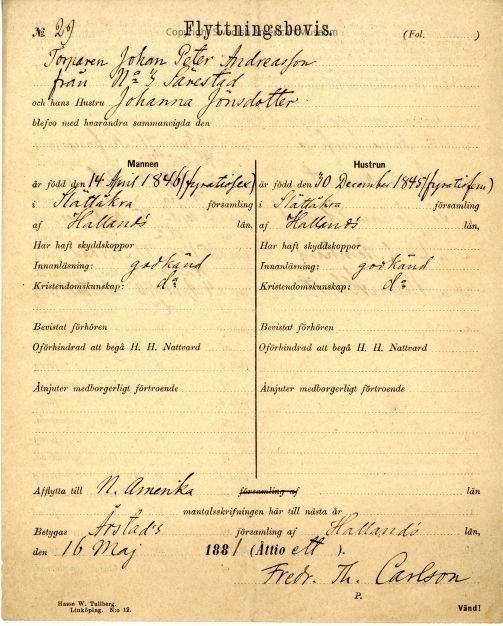 № 29 Flyttningsbevis. (Fol. )
Torparen Johan Peter Andreasson
från No 3 Särestad
och hans Hustru Johanna Jönsdotter
blefvo med hvarandra sammanvigda den
Mannen
är född den 14 April 1846 (fyratiosex)
i Slättåkra församling
af Hallands län,
Har haft skyddskoppor
Innanläsning: godkänd
Kristendomskunskap: do
Bevistat förhören
Oförhindrad att begå H. H. Nattvard
Åtnjuter medborgerligt förtroende
Hustrun
är född den 30 December 1845 (fyratiofem)
i Slättåkra församling
af Hallands län,
Har haft skyddskoppor
Innanläsning: godkänd
Kristendomskunskap: do
Bevistat förhören
Oförhindrad att begå H. H. Nattvard
Åtnjuter medborgerligt förtroende
Afflytta till N. Amerika församling af län
mantalsskrifningen här till nästa år
Betygas Årstads församling af Hallands län,
den 16 Maj 1881 (Åttio ett ).
Fredr. Th. Carlson
P.
Hasse W. Tullberg.
Linköping. N:o 12.
Vänd!